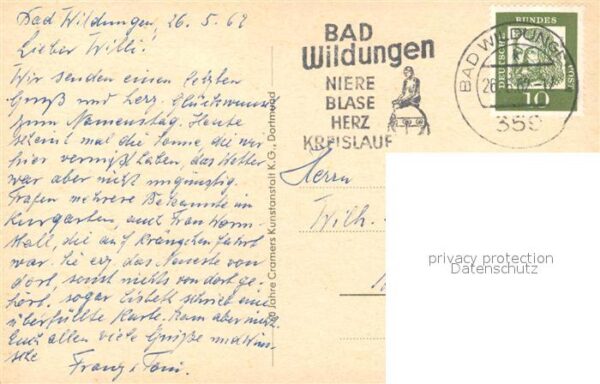 Bad Wildungen, 26.5.62
Lieber Willi!
Wir senden einen letzten
Gruß und herz. Glückwunsch
zum Namenstag. Heute
scheint mal die Sonne, die wir
hier vermißt haben, das Wetter
war aber nicht ungünstig.
Trafen mehrere Bekannte im
Kurgarten, auch Frau
die auf Kränzchenfahrt
war. Sie erz. das Neueste von
dort, sonst nichts von dort ge-
hört. sogar Lisbett schrieb eine
überfüllte Karte. Kam aber nicht.
Euch allen viele Grüße und Wün-
sche
Franz u. Toni.
80 Jahre Cramers Kunstanstalt K.G., Dortmund
BAD
Wildungen
NIERE
BLASE
HERZ
KREISLAUF
BAD WILDUNGEN
26
359
DEUTSCHE BUNDESPOST
10
Herrn
Wilh.
privacy protection
Datenschutz